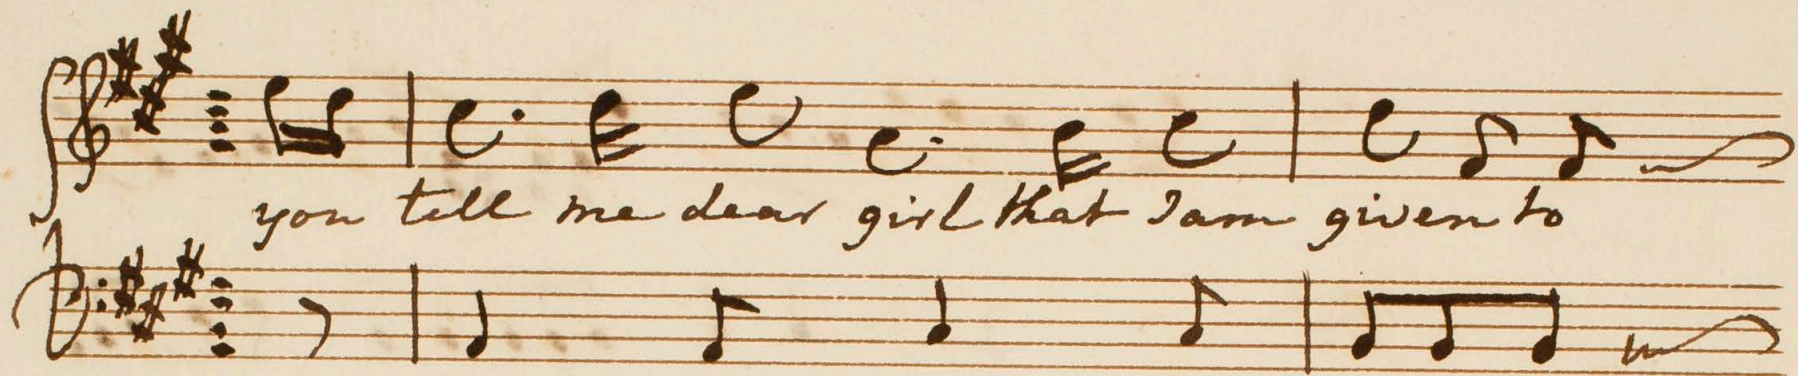 you tell me dear girl that I am given to